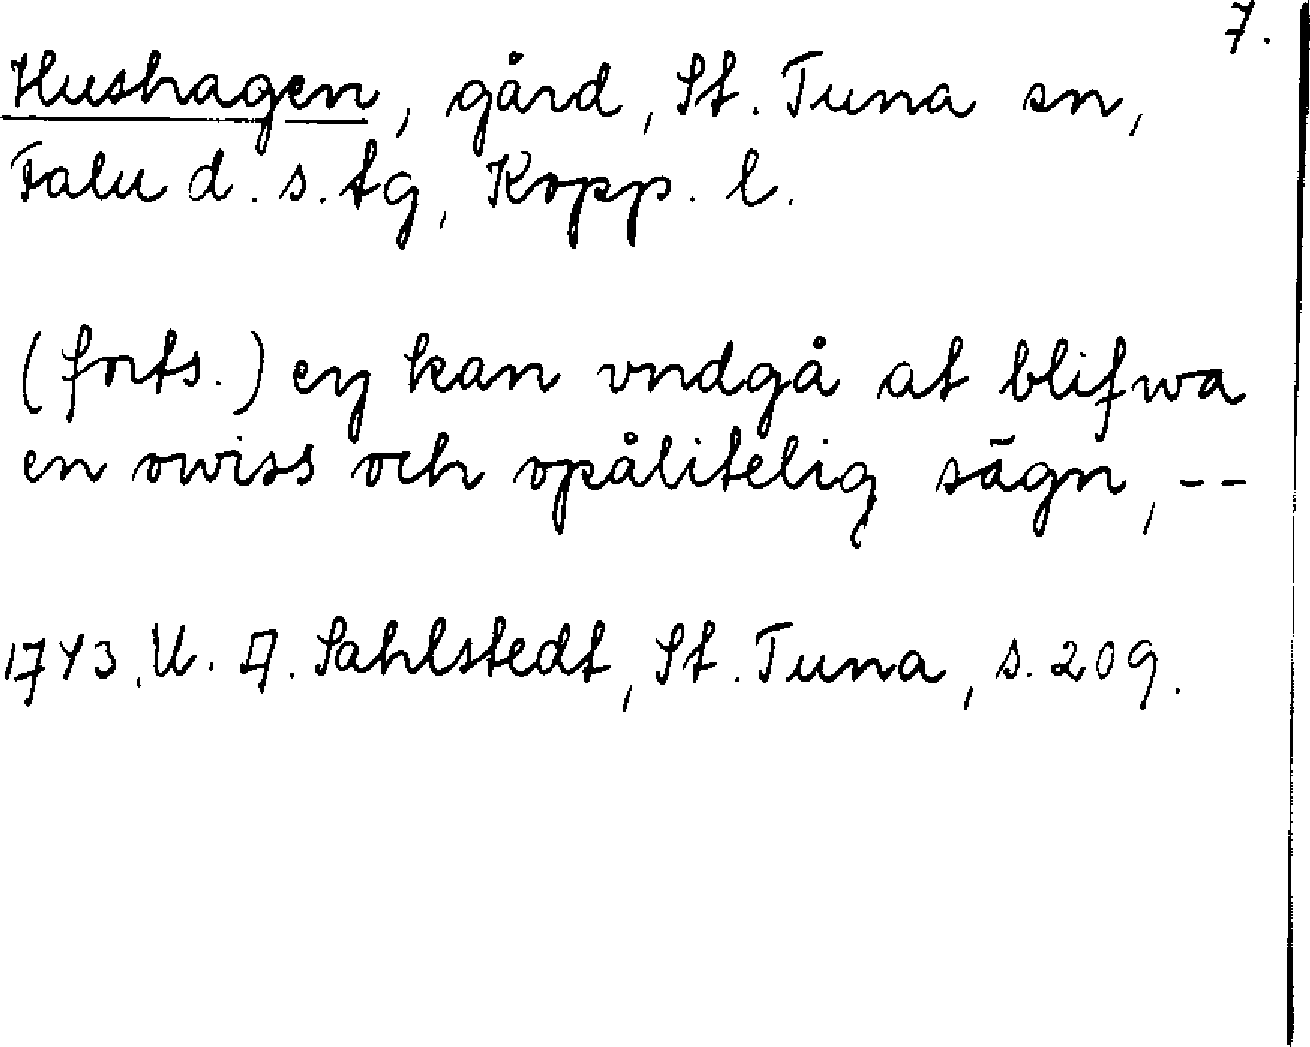 7.
Hushagen, gård, St. Tuna sn,
Falu d. s. tg, Kopp. l.
(forts.) ey kan vndgå at blifwa
en owiss och opålitelig sägn, --
1743, U. A. Sahlstedt, St. Tuna, s. 209.